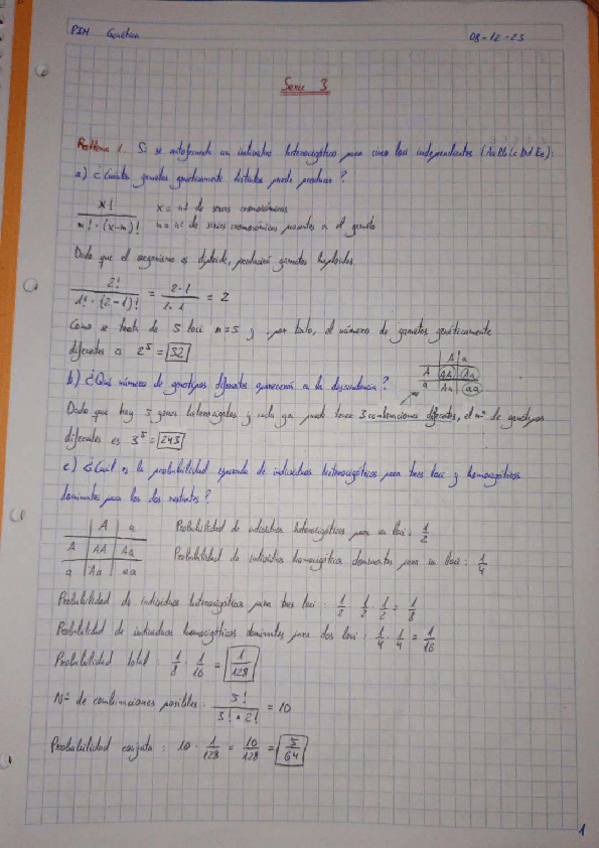 PIM Genética 08-12-23
Serie 3
Problema 1. Si se autofecunda un individuo heterocigótico para cinco loci independientes (Aa Bb Cc Dd Ee):
a) ¿Cuántos gametos genéticamente distintos puede producir?
x! / m! · (x-m)! x = nº de series cromosómicas
m = nº de series cromosómicas presentes en el gameto
Dado que el organismo es diploide, producirá gametos haploides
2! / 1! · (2-1)! = 2·1 / 1·1 = 2
Como se trata de 5 loci n=5 y, por tanto, el número de gametos genéticamente
diferentes es 2^5 = 32
A a
A AA Aa
a Aa aa
b) ¿Qué número de genotipos diferentes aparecerán en la descendencia?
Dado que hay 5 genes heterocigotos y cada uno puede tener 3 combinaciones diferentes, el nº de genotipos
diferentes es 3^5 = 243
c) ¿Cuál es la probabilidad esperada de individuos heterocigóticos para tres loci y homocigóticos
dominantes para los dos restantes?
A a
A AA Aa
a Aa aa
Probabilidad de individuos heterocigóticos para un loci: 1/2
Probabilidad de individuos homocigóticos dominantes para un loci: 1/4
Probabilidad de individuos heterocigóticos para tres loci: 1/2 · 1/2 · 1/2 = 1/8
Probabilidad de individuos homocigóticos dominantes para dos loci: 1/4 · 1/4 = 1/16
Probabilidad total: 1/8 · 1/16 = 1/128
Nº de combinaciones posibles: 5! / 3! · 2! = 10
Probabilidad conjunta: 10 · 1/128 = 10/128 = 5/64
1